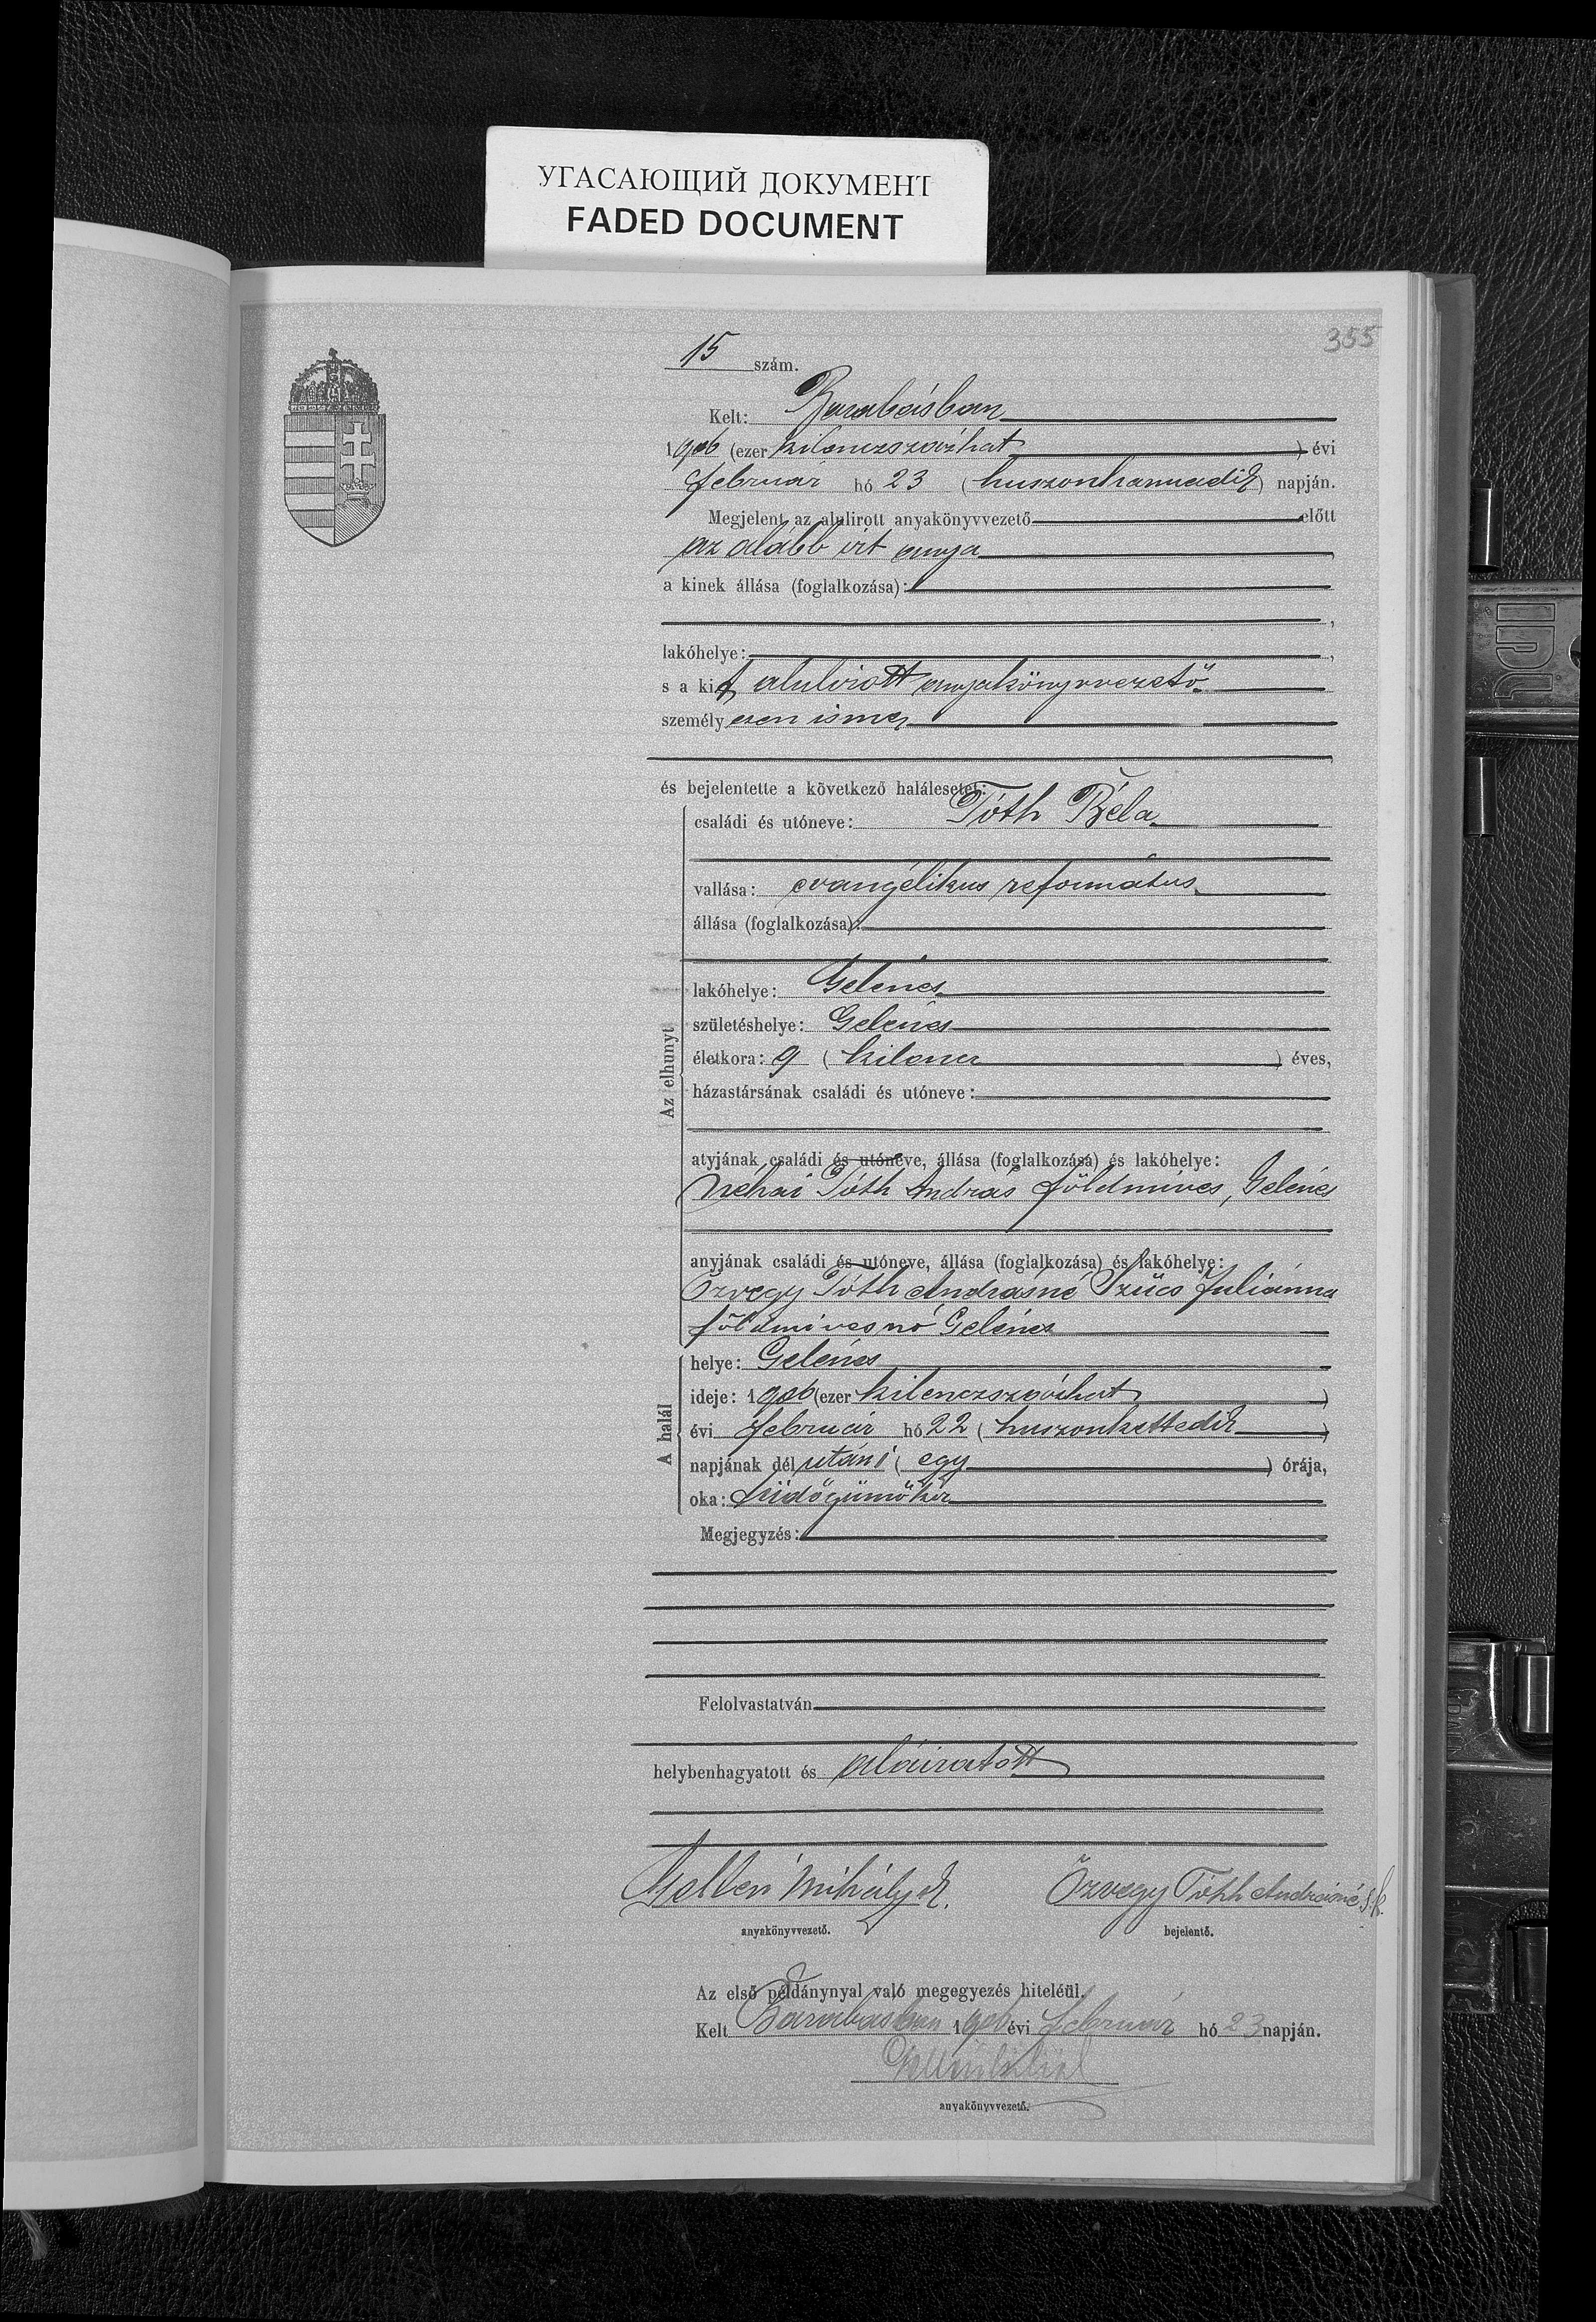 УГАСАЮЩИЙ ДОКУМЕНТ
FADED DOCUMENT
355
15 szám.
Kelt: Barabásban
1906 (ezer kilenczszázhat) évi
február hó 23 (huszonharmadik) napján.
Megjelent az alulirott anyakönyvvezető előtt
az alább irt anya
a kinek állása (foglalkozása):
,
lakóhelye: ,
s a kit alulirott anyakönyvvezető
személyesen ismer
és bejelentette a következő halálesetet:
Az elhunyt
családi és utóneve: Tóth Béla
vallása: evangélikus református
állása (foglalkozása):
lakóhelye: Gelénes
születéshelye: Gelénes
életkora: 9 (kilencz) éves,
házastársának családi és utóneve:
atyjának családi és utóneve, állása (foglalkozása) és lakóhelye:
néhai Tóth András földmíves, Gelénes
anyjának családi és utóneve, állása (foglalkozása) és lakóhelye:
Özvegy Tóth Andrásné Szűcs Juliánna
földmívesnő Gelénes
A halál
helye: Gelénes
ideje: 1906 (ezer kilenczszázhat)
évi február hó 22 (huszonkettedik)
napjának délutáni (egy) órája,
oka: tüdőgümőkór
Megjegyzés:
Felolvastatván
helybenhagyatott és aláiratott
Mihály
anyakönyvvezető.
Özvegy Tóth Andrásné s.k.
bejelentő.
Az első példánynyal való megegyezés hiteléül.
Kelt Barabásban 1906 évi február hó 23 napján.
anyakönyvvezető.